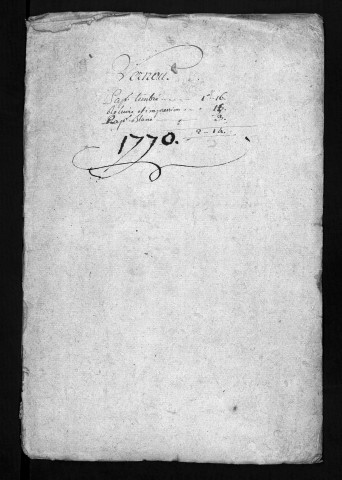 Vernou.
Pap. timbré 1 16.
Reliure et impression " 15.
Pap. blanc " 3.
2 14.
1770.